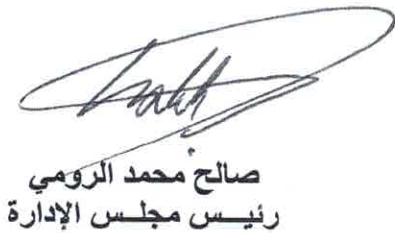 صالح محمد الرومي
رئيس مجلس الإدارة